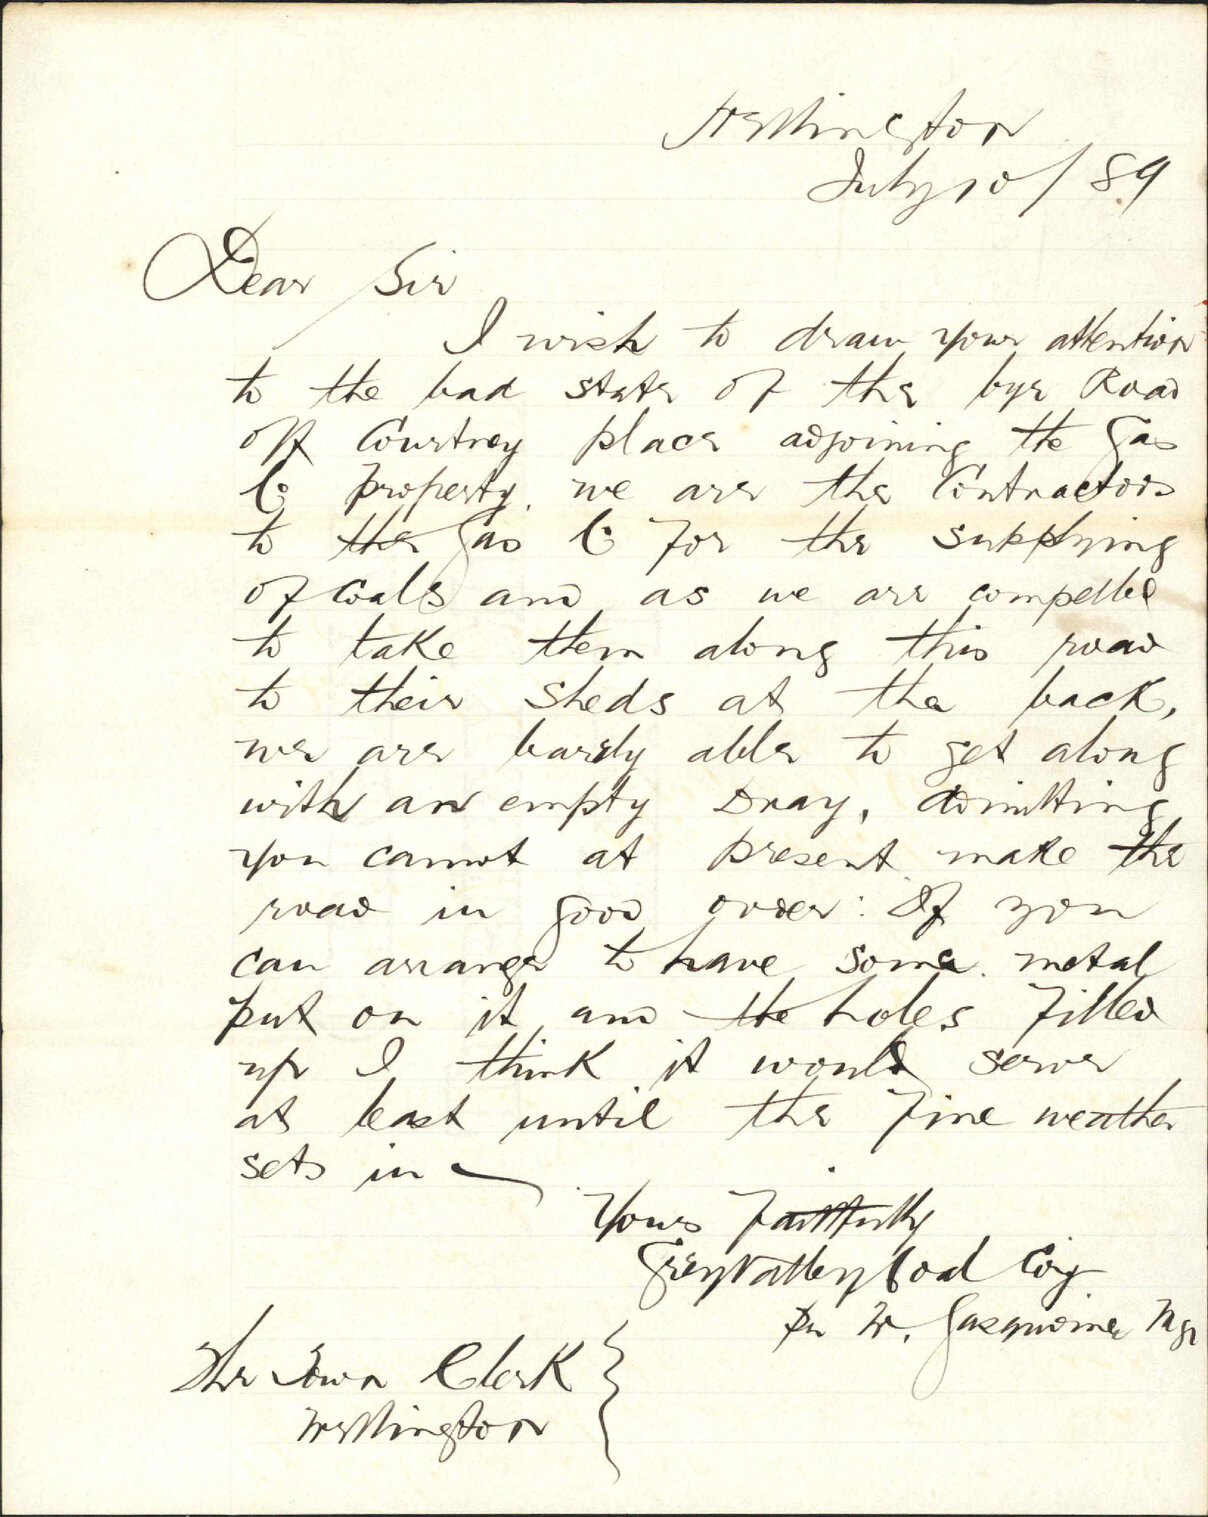 Wellington
July 10/89
Dear Sir
I wish to draw your attention
to the bad state of the bye Road
off Courtney place adjoining the Gas
Co property. we are the Contractors
to the Gas Co for the supplying
of Coals and as we are compelled
to take them along this road
to their sheds at the back,
we are barely able to get along
with an empty Dray, admitting
you cannot at present make the
road in good order: If you
can arrange to have some metal
put on it and the holes filled
up I think it would serve
at least until the fine weather
sets in
Yours faithfully
Grey Valley Coal Coy
Per W. Mgr
The Town Clerk
Wellington